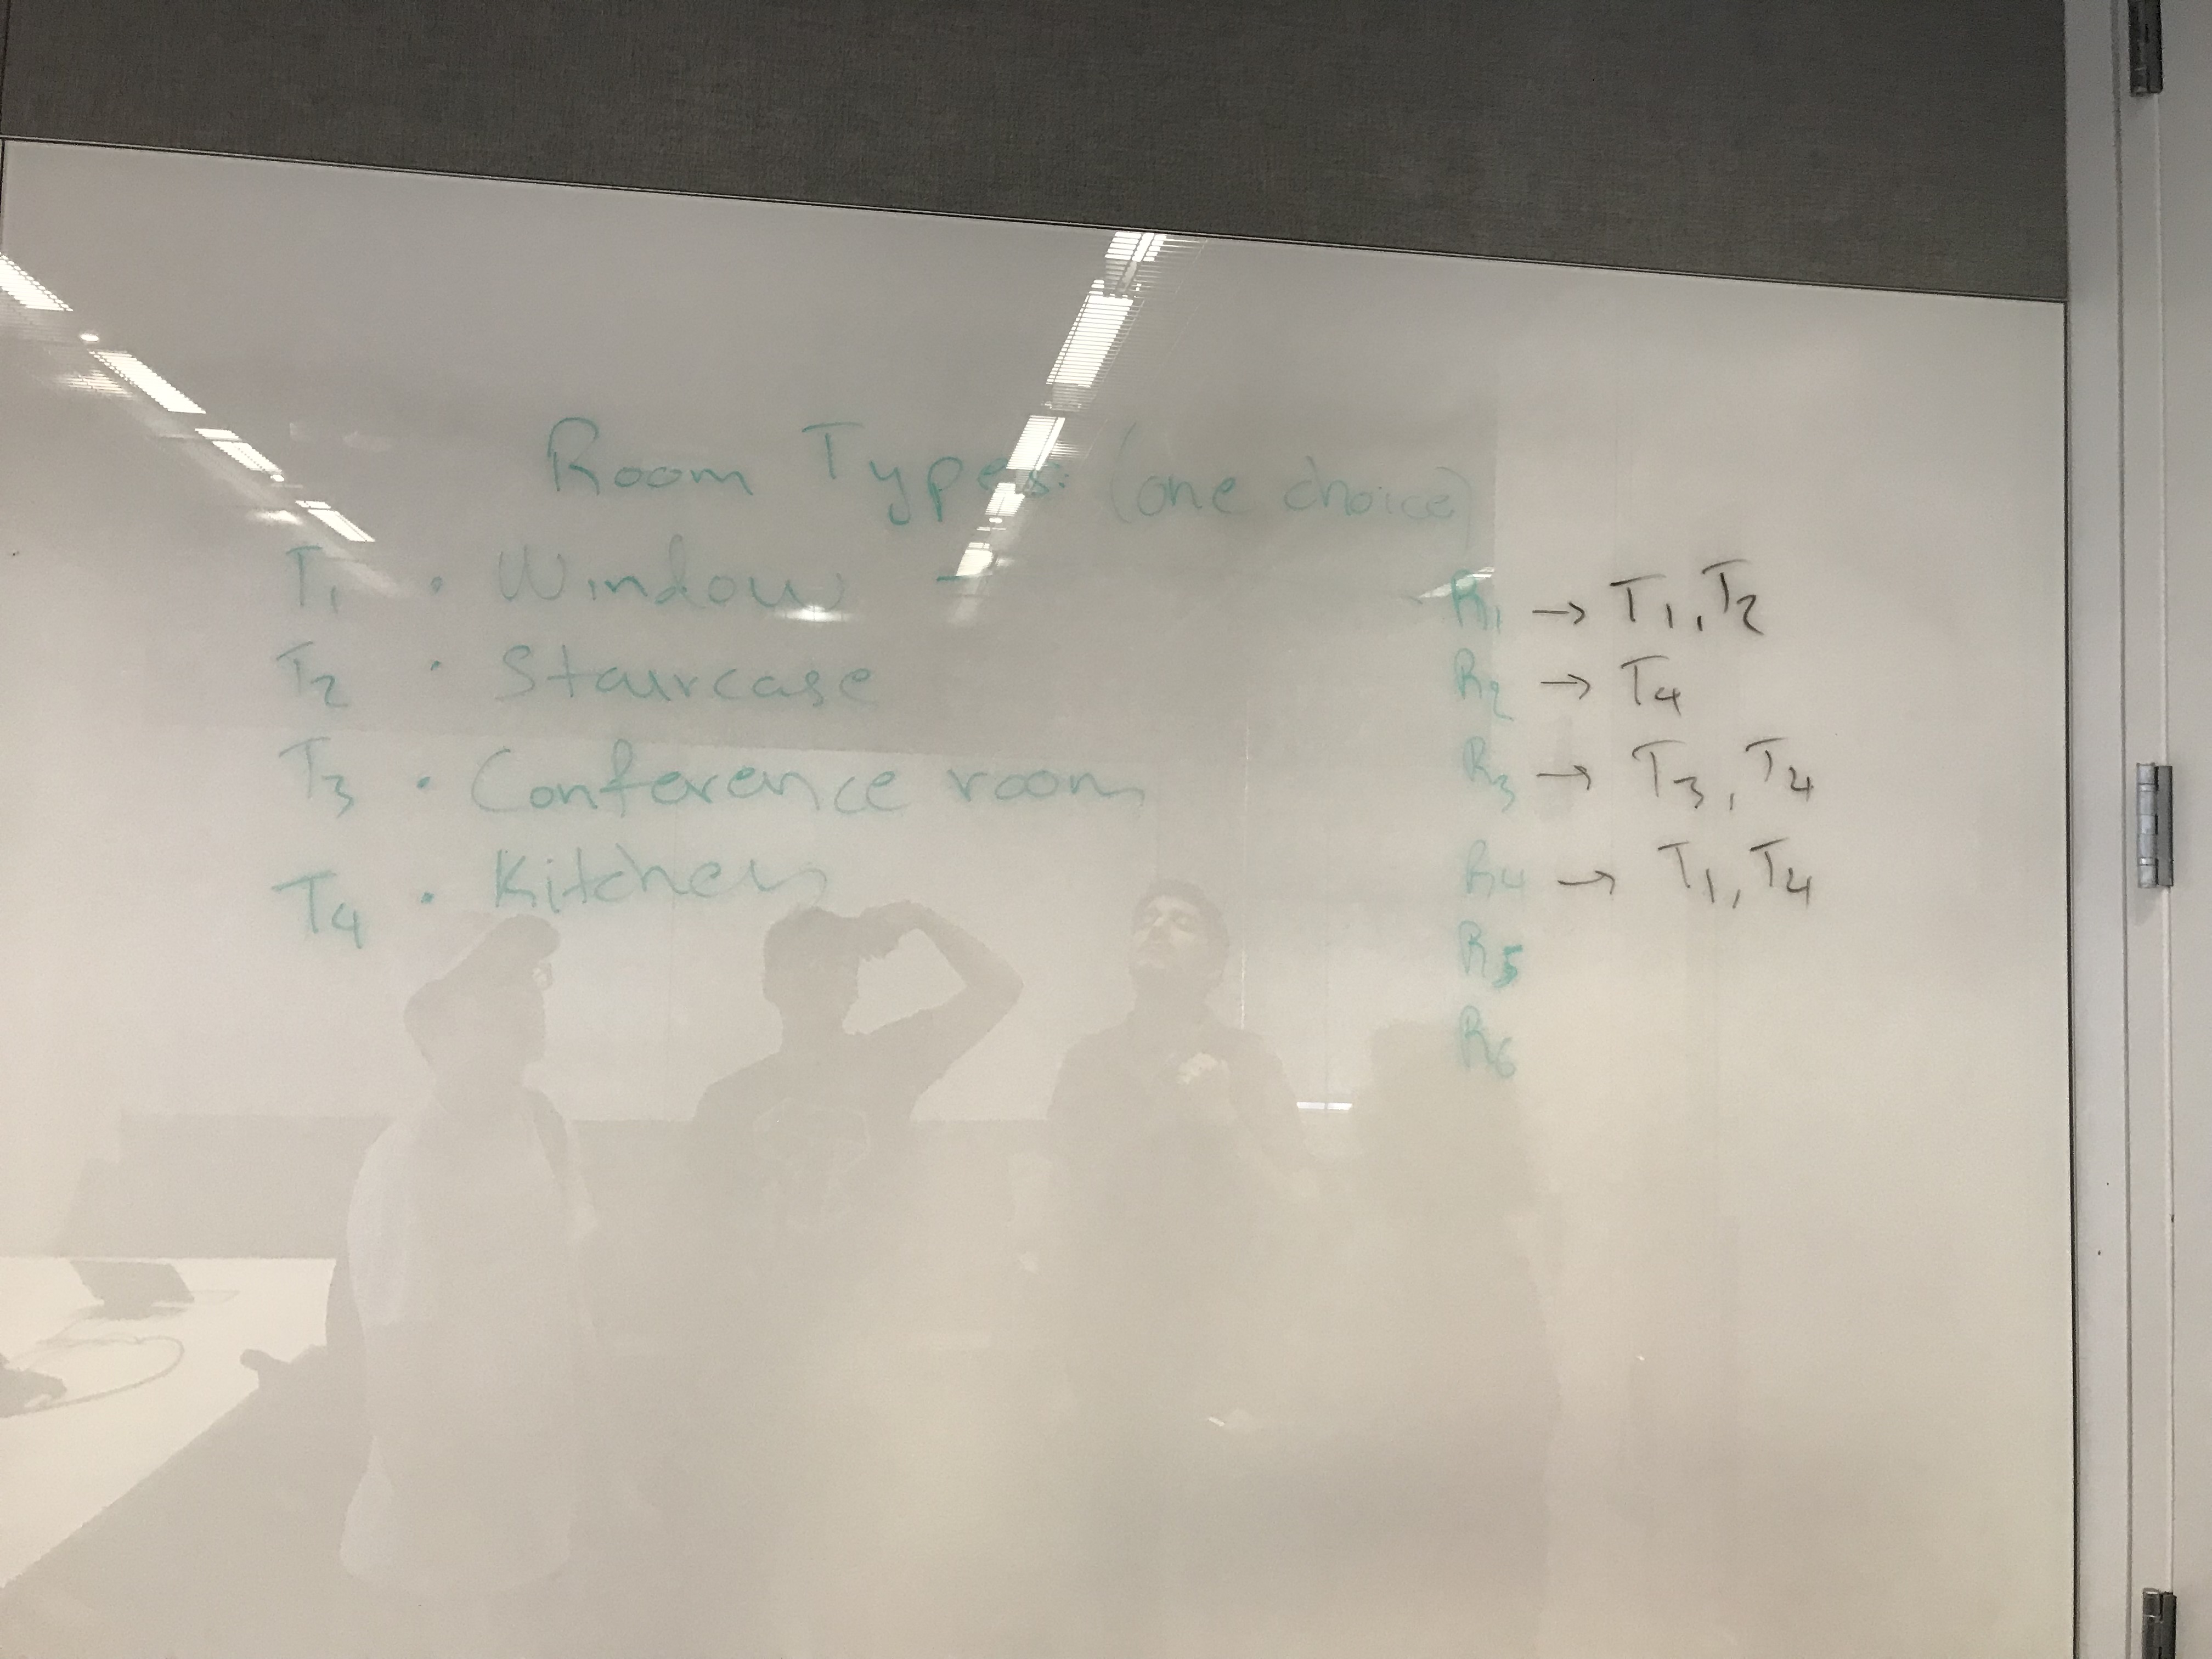 Room Types: (one choice)
T1 • Window -
T2 • Staircase
T3 • Conference room
T4 • Kitchen
R1 → T1, T2
R2 → T4
R3 → T3, T4
R4 → T1, T4
R5
R6